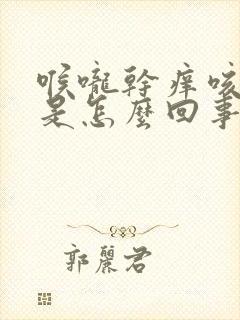 喉嚨幹痒咳
是怎麼回事
郭麗君